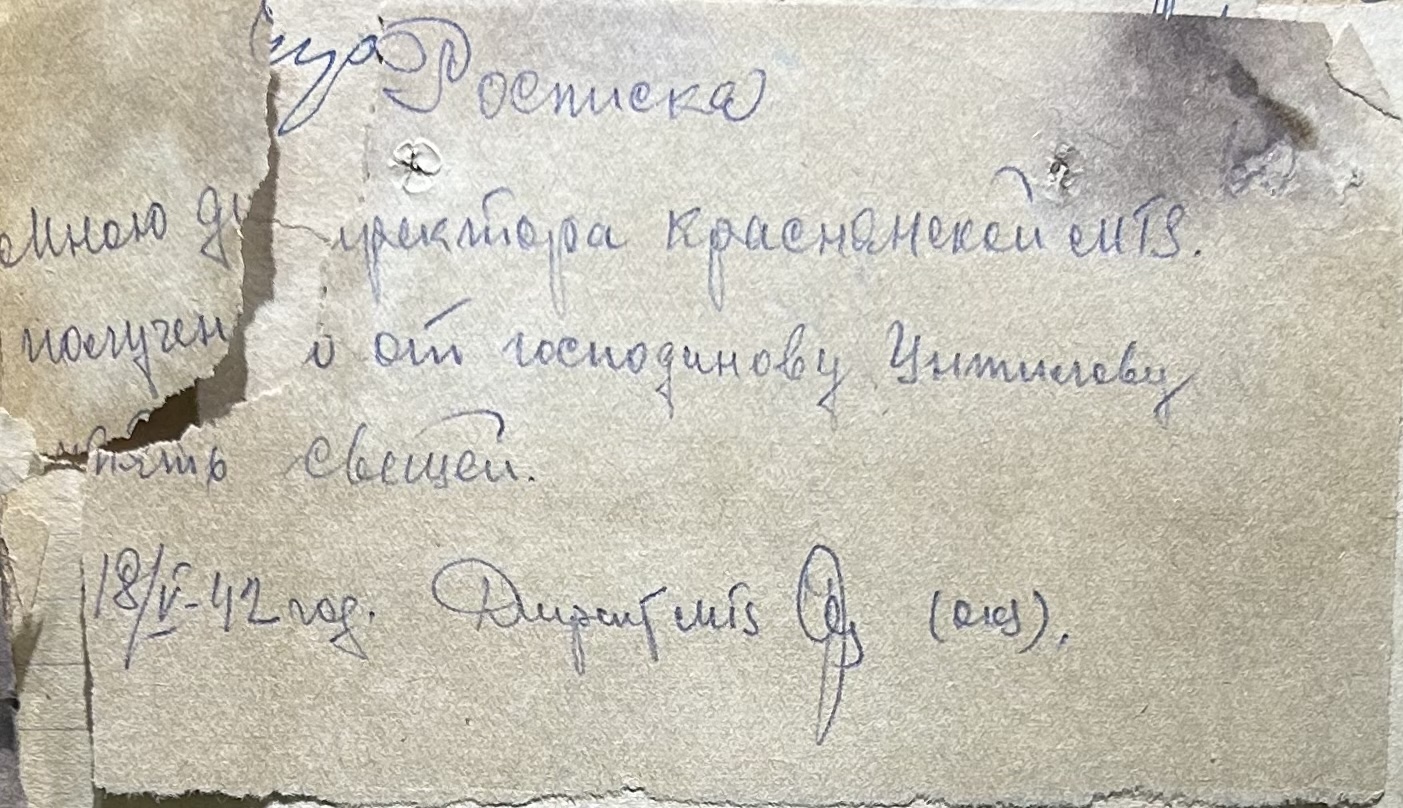 Росписка
мною директора Краснянской МТS.
получено от господинову Унтилову
пять свещей.
18/V-42 год. Директ МТS